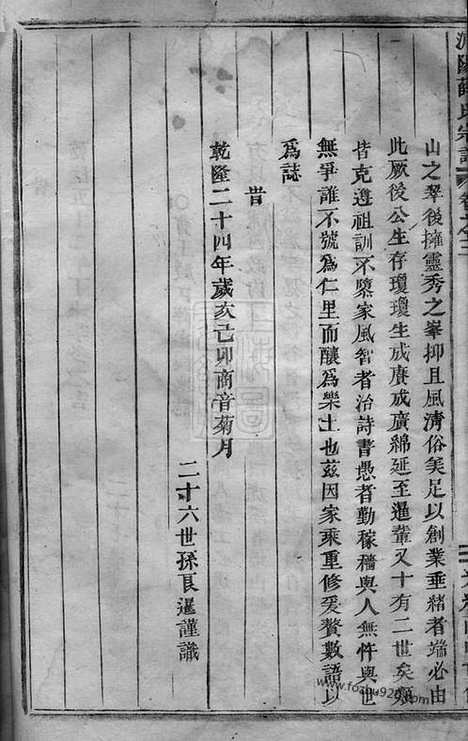 山之翠後擁靈秀之峯抑且風清俗美足以創業垂緒者端必由
此厥後公生存瓊瓊生成賡成廣綿延至暹輩又十有二世矣類
皆克遵祖訓不隳家風智者治詩書愚者勤稼穡與人無忤與世
無爭誰不號為仁里而釀為樂土也茲因家乘重修爰贅數語以
為誌
旹
乾隆二十四年歲亥己卯商音菊月
二十六世孫良暹謹識